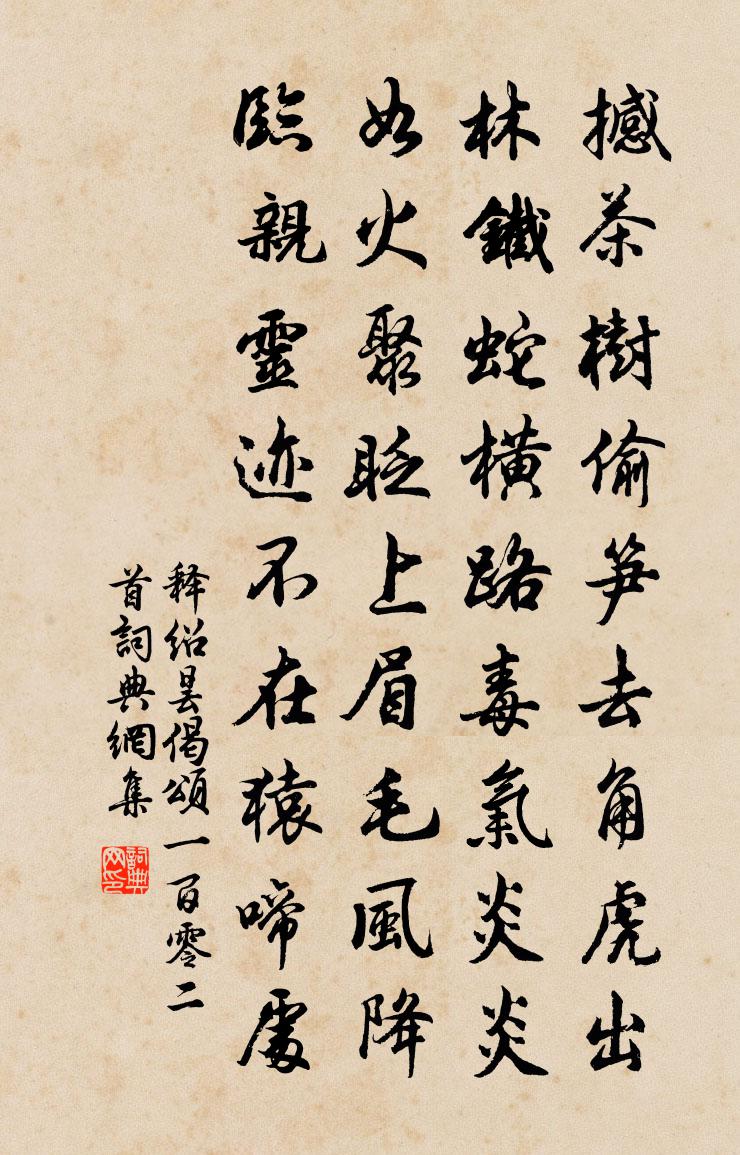 撼茶樹偷笋去角虎出
林鐵蛇橫路毒氣炎炎
如火聚眨上眉毛風降
臨親靈迹不在猿啼處
释紹曇偈頌一百零二
首詞典網集
詞典网印